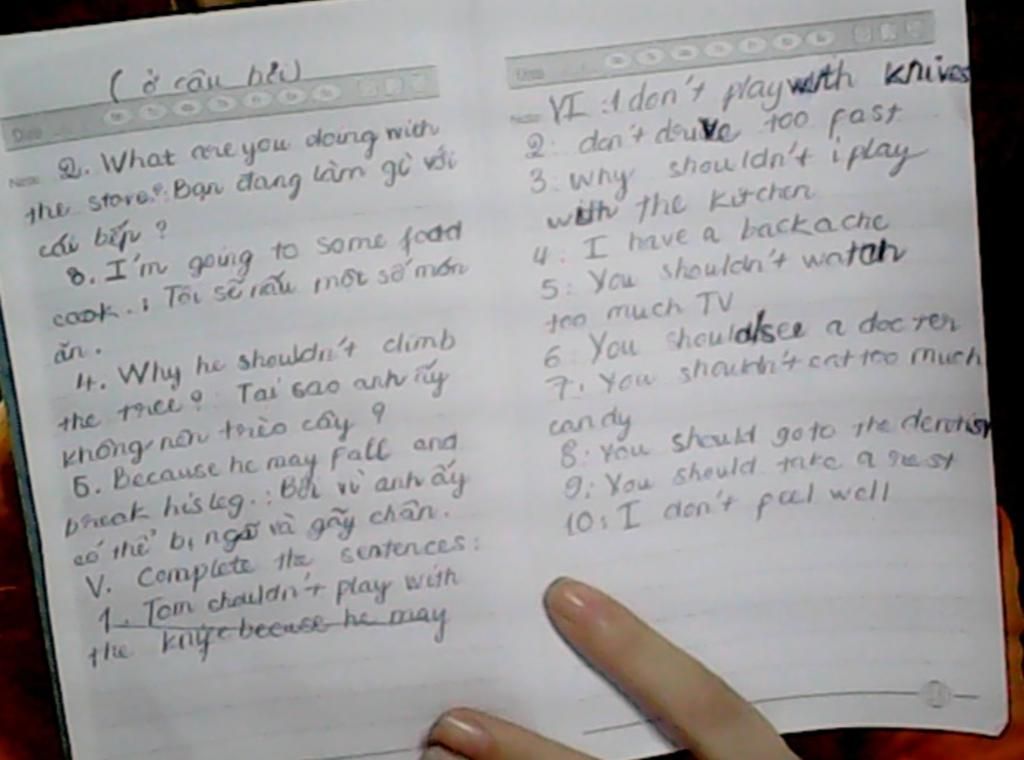 ( ở câu hỏi)
Date
Note:
2. What are you doing with
the stove? Bạn đang làm gì với
cái bếp ?
3. I'm going to some food
cook. : Tôi sẽ nấu một số món
ăn.
4. Why he shouldn't climb
the tree? Tai sao anh ấy
không nên trèo cây ?
5. Because he may fall and
break his leg. : Bởi vì anh ấy
có thể bị ngã và gãy chân.
V. Complete the sentences:
1. Tom chouldn't play with
the knife becuse he may
Date
VI : 1 don't play with knives
2: don't drive too fast
3: why shouldn't i play
with the kitchen
4: I have a backache
5: You shouldn't watch
too much TV
6: You should see a docter
7: You shouldn't eat too much
candy
8: You should go to the dentist
9: You should take a rest
10: I don't feel well